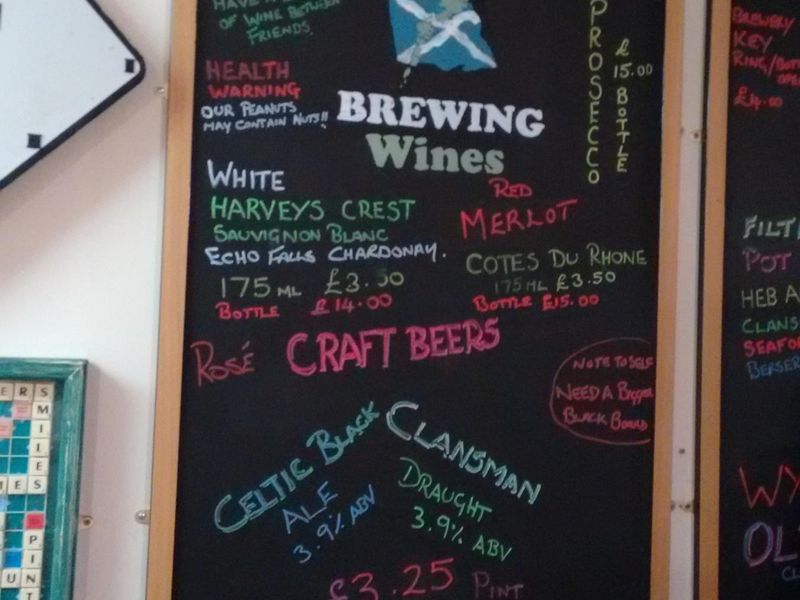 OF WINE BETWEEN
FRIENDS.
HEALTH
WARNING
OUR PEANUTS
MAY CONTAIN NUTS!!
BREWING
Wines
PROSECCO
£
15.00
BOTTLE
WHITE
HARVEYS CREST
SAUVIGNON BLANC
ECHO FALLS CHARDONAY.
175 ML £3.50
BOTTLE £14.00
RED
MERLOT
COTES DU RHONE
175 ML £3.50
BOTTLE £15.00
ROSÉ
CRAFT BEERS
NOTE TO SELF
NEED A BIGGER
BLACK BOARD
CELTIC BLACK
ALE
3.9% ABV
CLANSMAN
DRAUGHT
3.9% ABV
£3.25 PINT
BREWERY
KEY
RING/
£4.00
POT
HEB
SMILES
PINT
UN